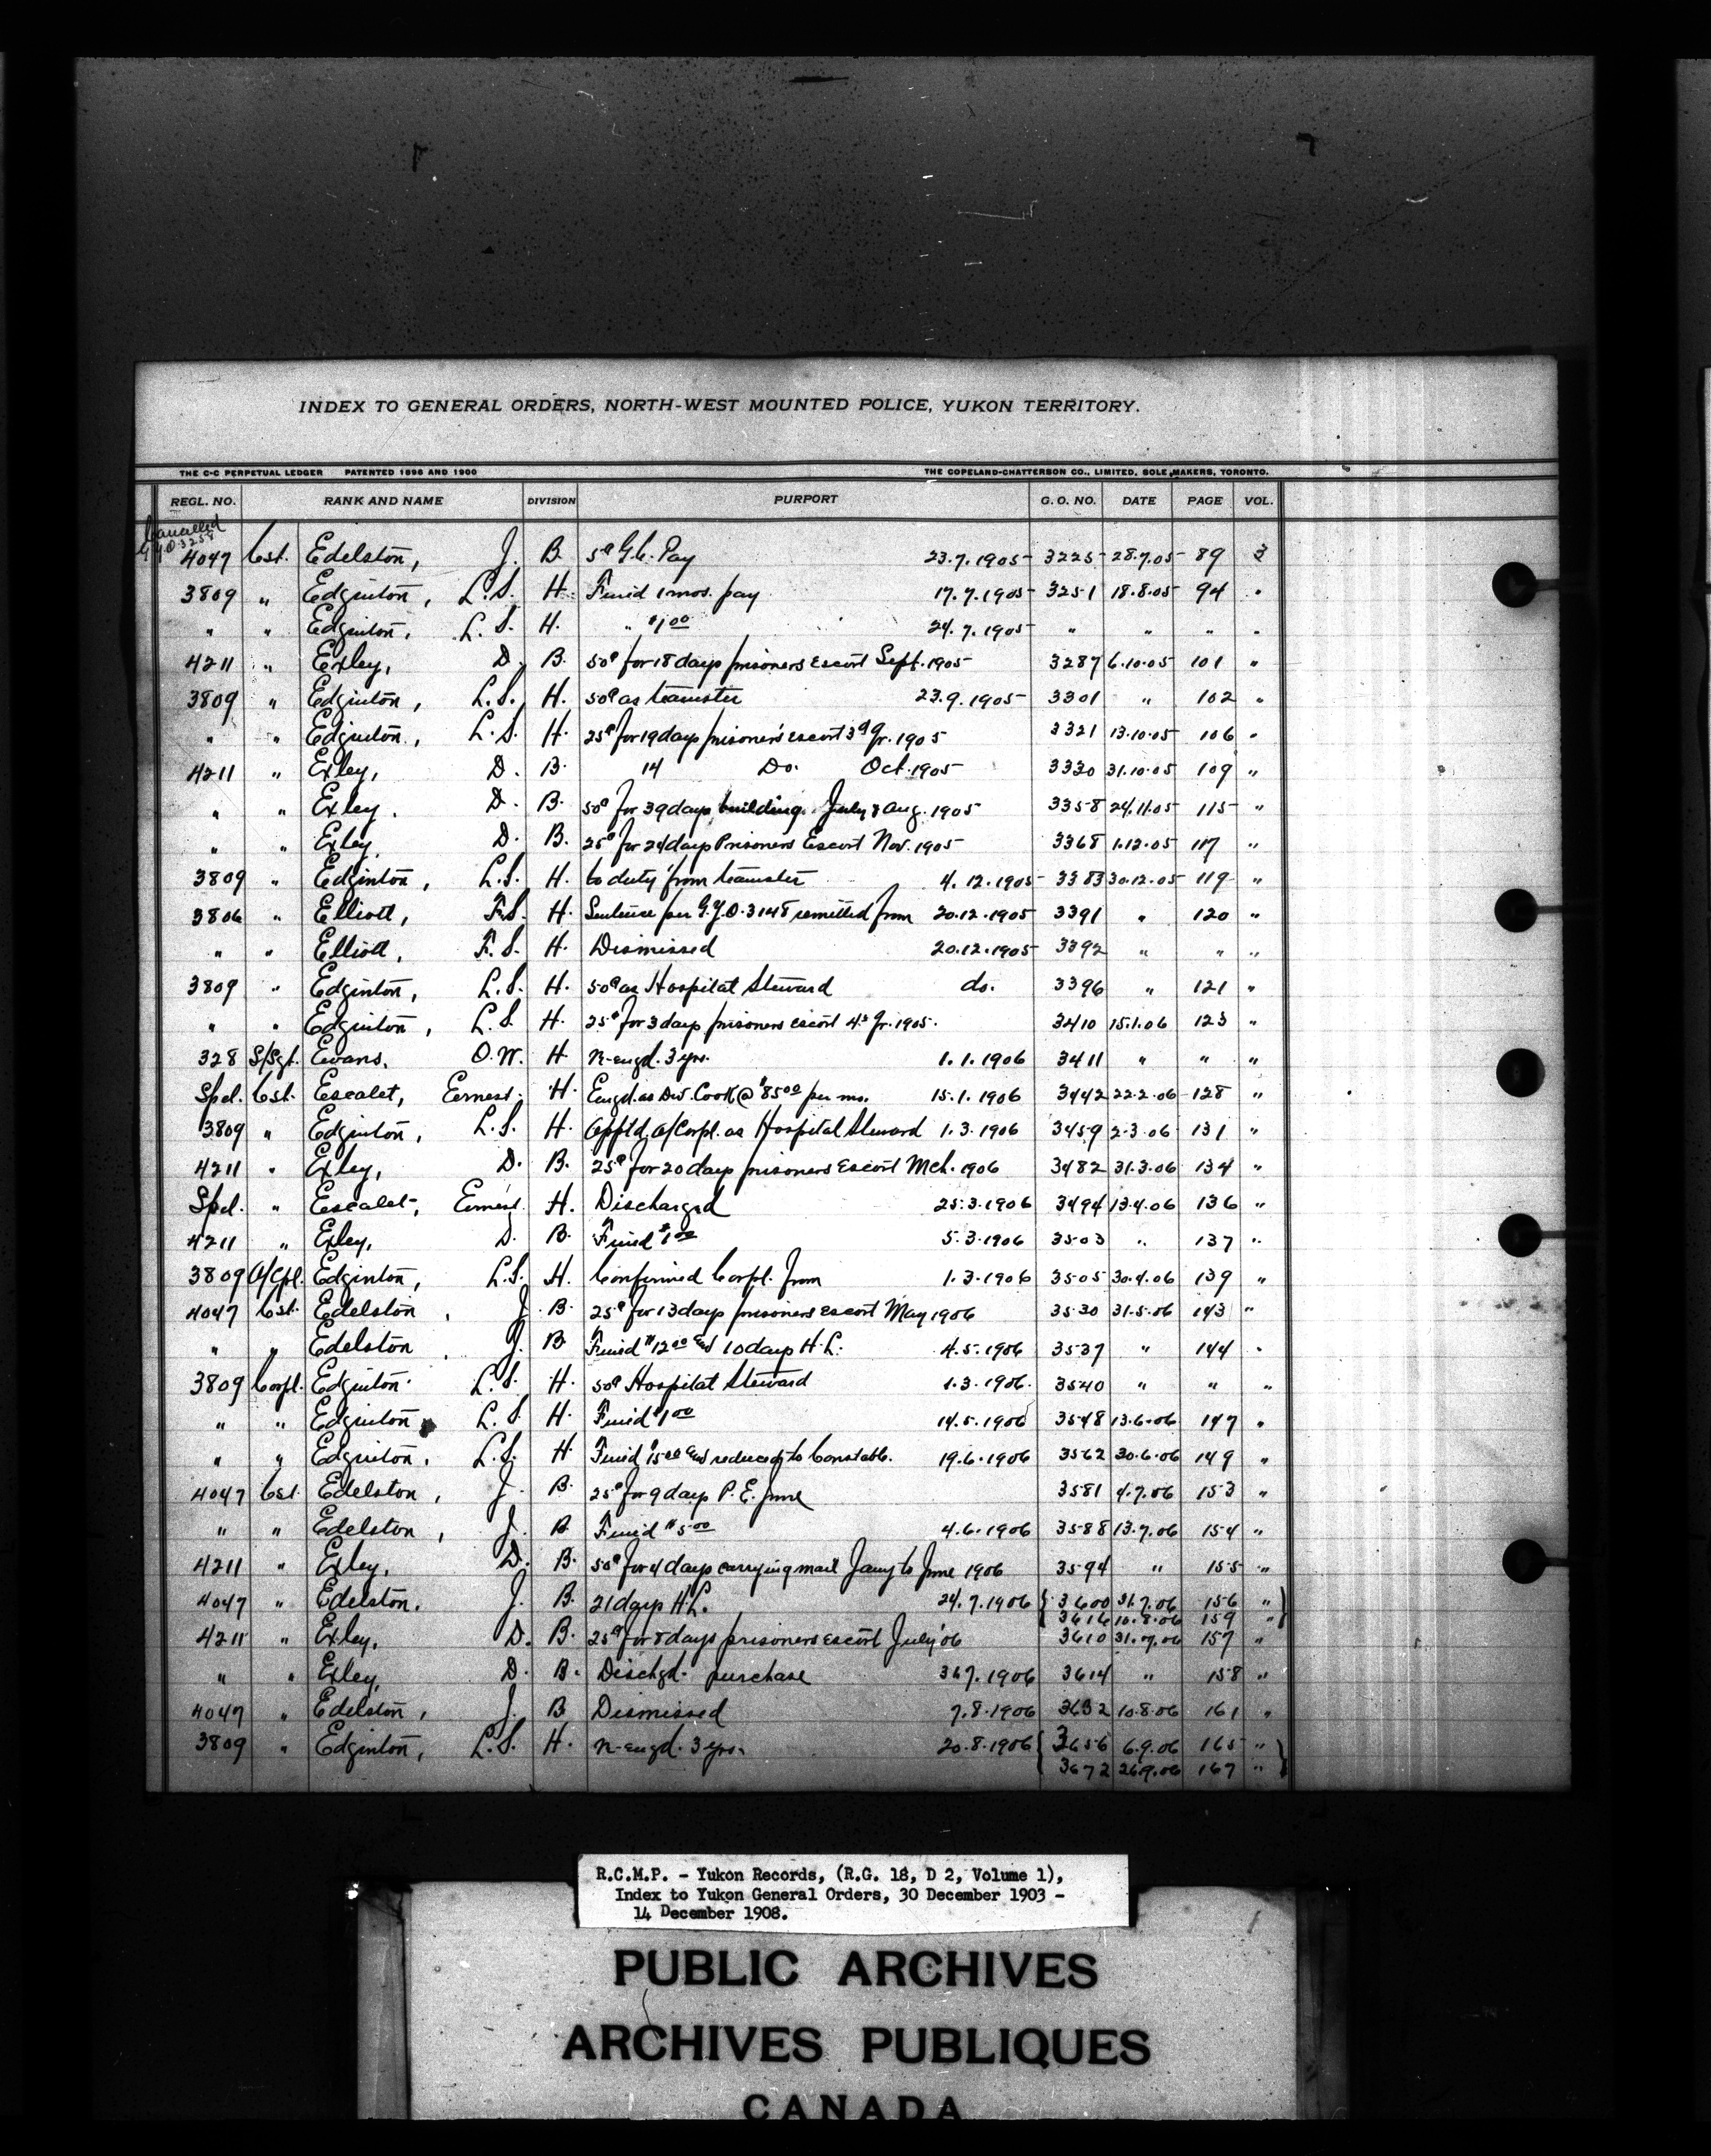 INDEX TO GENERAL ORDERS, NORTH-WEST MOUNTED POLICE, YUKON TERRITORY.
THE C-C PERPETUAL LEDGER PATENTED 1896 AND 1900 THE COPELAND-CHATTERSON CO., LIMITED, SOLE MAKERS, TORONTO.
REGL. NO. RANK AND NAME DIVISION PURPORT G. O. NO. DATE PAGE VOL.
Cancelled
G.Y.O. 3258
4047 Cst. Edelston, J. B. 5¢ G.C. Pay 23.7.1905 3225 28.7.05 89 3
3809 " Edginton, L.S. H. Fined 1 mos. pay 17.7.1905 3251 18.8.05 94 "
" " Edginton, L.S. H. " $1.00 24.7.1905 " " " "
4211 " Exley, D. B. 50¢ for 18 days prisoners escort Sept. 1905 3287 6.10.05 101 "
3809 " Edginton, L.S. H. 50¢ as teamster 23.9.1905 3301 " 102 "
" " Edginton, L.S. H. 25¢ for 19 days prisoners escort 3d Qr. 1905 3321 13.10.05 106 "
4211 " Exley, D. B. 14 Do. Oct. 1905 3330 31.10.05 109 "
" " Exley. D. B. 50¢ for 39 days building July & Aug. 1905 3358 24.11.05 115 "
" " Exley, D. B. 25¢ for 24 days Prisoners Escort Nov. 1905 3368 1.12.05 117 "
3809 " Edginton, L.S. H. to duty from teamster 4.12.1905 3383 30.12.05 119 "
3806 " Elliott, F.S. H. Sentence per G.Y.O. 3148 remitted from 20.12.1905 3391 " 120 "
" " Elliott, F.S. H. Dismissed 20.12.1905 3392 " " "
3809 " Edginton, L.S. H. 50¢ as Hospital Steward do. 3396 " 121 "
" " Edginton, L.S. H. 25¢ for 3 days prisoners escort 4th Qr. 1905. 3410 15.1.06 123 "
328 S/Sgt. Evans, O.W. H. re-engd. 3 yrs. 1.1.1906 3411 " " "
Spcl. Cst. Escalet, Ernest. H. Engd. as Div. Cook @ $85.00 per mo. 15.1.1906 3442 22.2.06 128 "
3809 " Edginton, L.S. H. Apptd. A/Corpl. as Hospital Steward 1.3.1906 3459 2.3.06 131 "
4211 " Exley, D. B. 25¢ for 20 days prisoners Escort Mch. 1906 3482 31.3.06 134 "
Spcl. " Escalet, Ernest. H. Discharged 25.3.1906 3494 13.4.06 136 "
4211 " Exley, D. B. Fined $1.00 5.3.1906 3503 " 137 "
3809 A/Cpl. Edginton, L.S. H. Confirmed Corpl. from 1.3.1906 3505 30.4.06 139 "
4047 Cst. Edelston, J. B. 25¢ for 13 days prisoners escort May 1906 3530 31.5.06 143 "
" " Edelston, J. B Fined $12.00 and 10 days H.L. 4.5.1906 3537 " 144 "
3809 Corpl. Edginton L.S. H. 50¢ Hospital Steward 1.3.1906. 3540 " " "
" " Edginton, L.S. H. Fined $1.00 14.5.1906 3548 13.6.06 147 "
" " Edginton, L.S. H Fined $15.00 and reduced to Constable. 19.6.1906 3562 30.6.06 149 "
4047 Cst. Edelston, J. B. 25¢ for 9 days P.E. June 3581 4.7.06 153 "
" " Edelston, J. B Fined $5.00 4.6.1906 3588 13.7.06 154 "
4211 " Exley, D. B. 50¢ for 4 days carrying mail Jany to June 1906 3594 " 155 "
4047 " Edelston. J. B. 21 days H.L. 24.7.1906 { 3600 31.7.06 156 " }
3616 10.8.06 159 "
4211 " Exley, D. B. 25¢ for 8 days prisoners escort July '06 3610 31.7.06 157 "
" " Exley, D. B. Dischgd. purchase 7.1906 3614 " 158 "
4047 " Edelston, J. B Dismissed 7.8.1906 3632 10.8.06 161 "
3809 " Edginton, L.S. H. re-engd. 3 yrs. 20.8.1906 { 3656 6.9.06 165 " }
3672 26.9.06 167 "
R.C.M.P. - Yukon Records, (R.G. 18, D 2, Volume 1),
Index to Yukon General Orders, 30 December 1903 -
14 December 1908.
PUBLIC ARCHIVES
ARCHIVES PUBLIQUES
CANADA